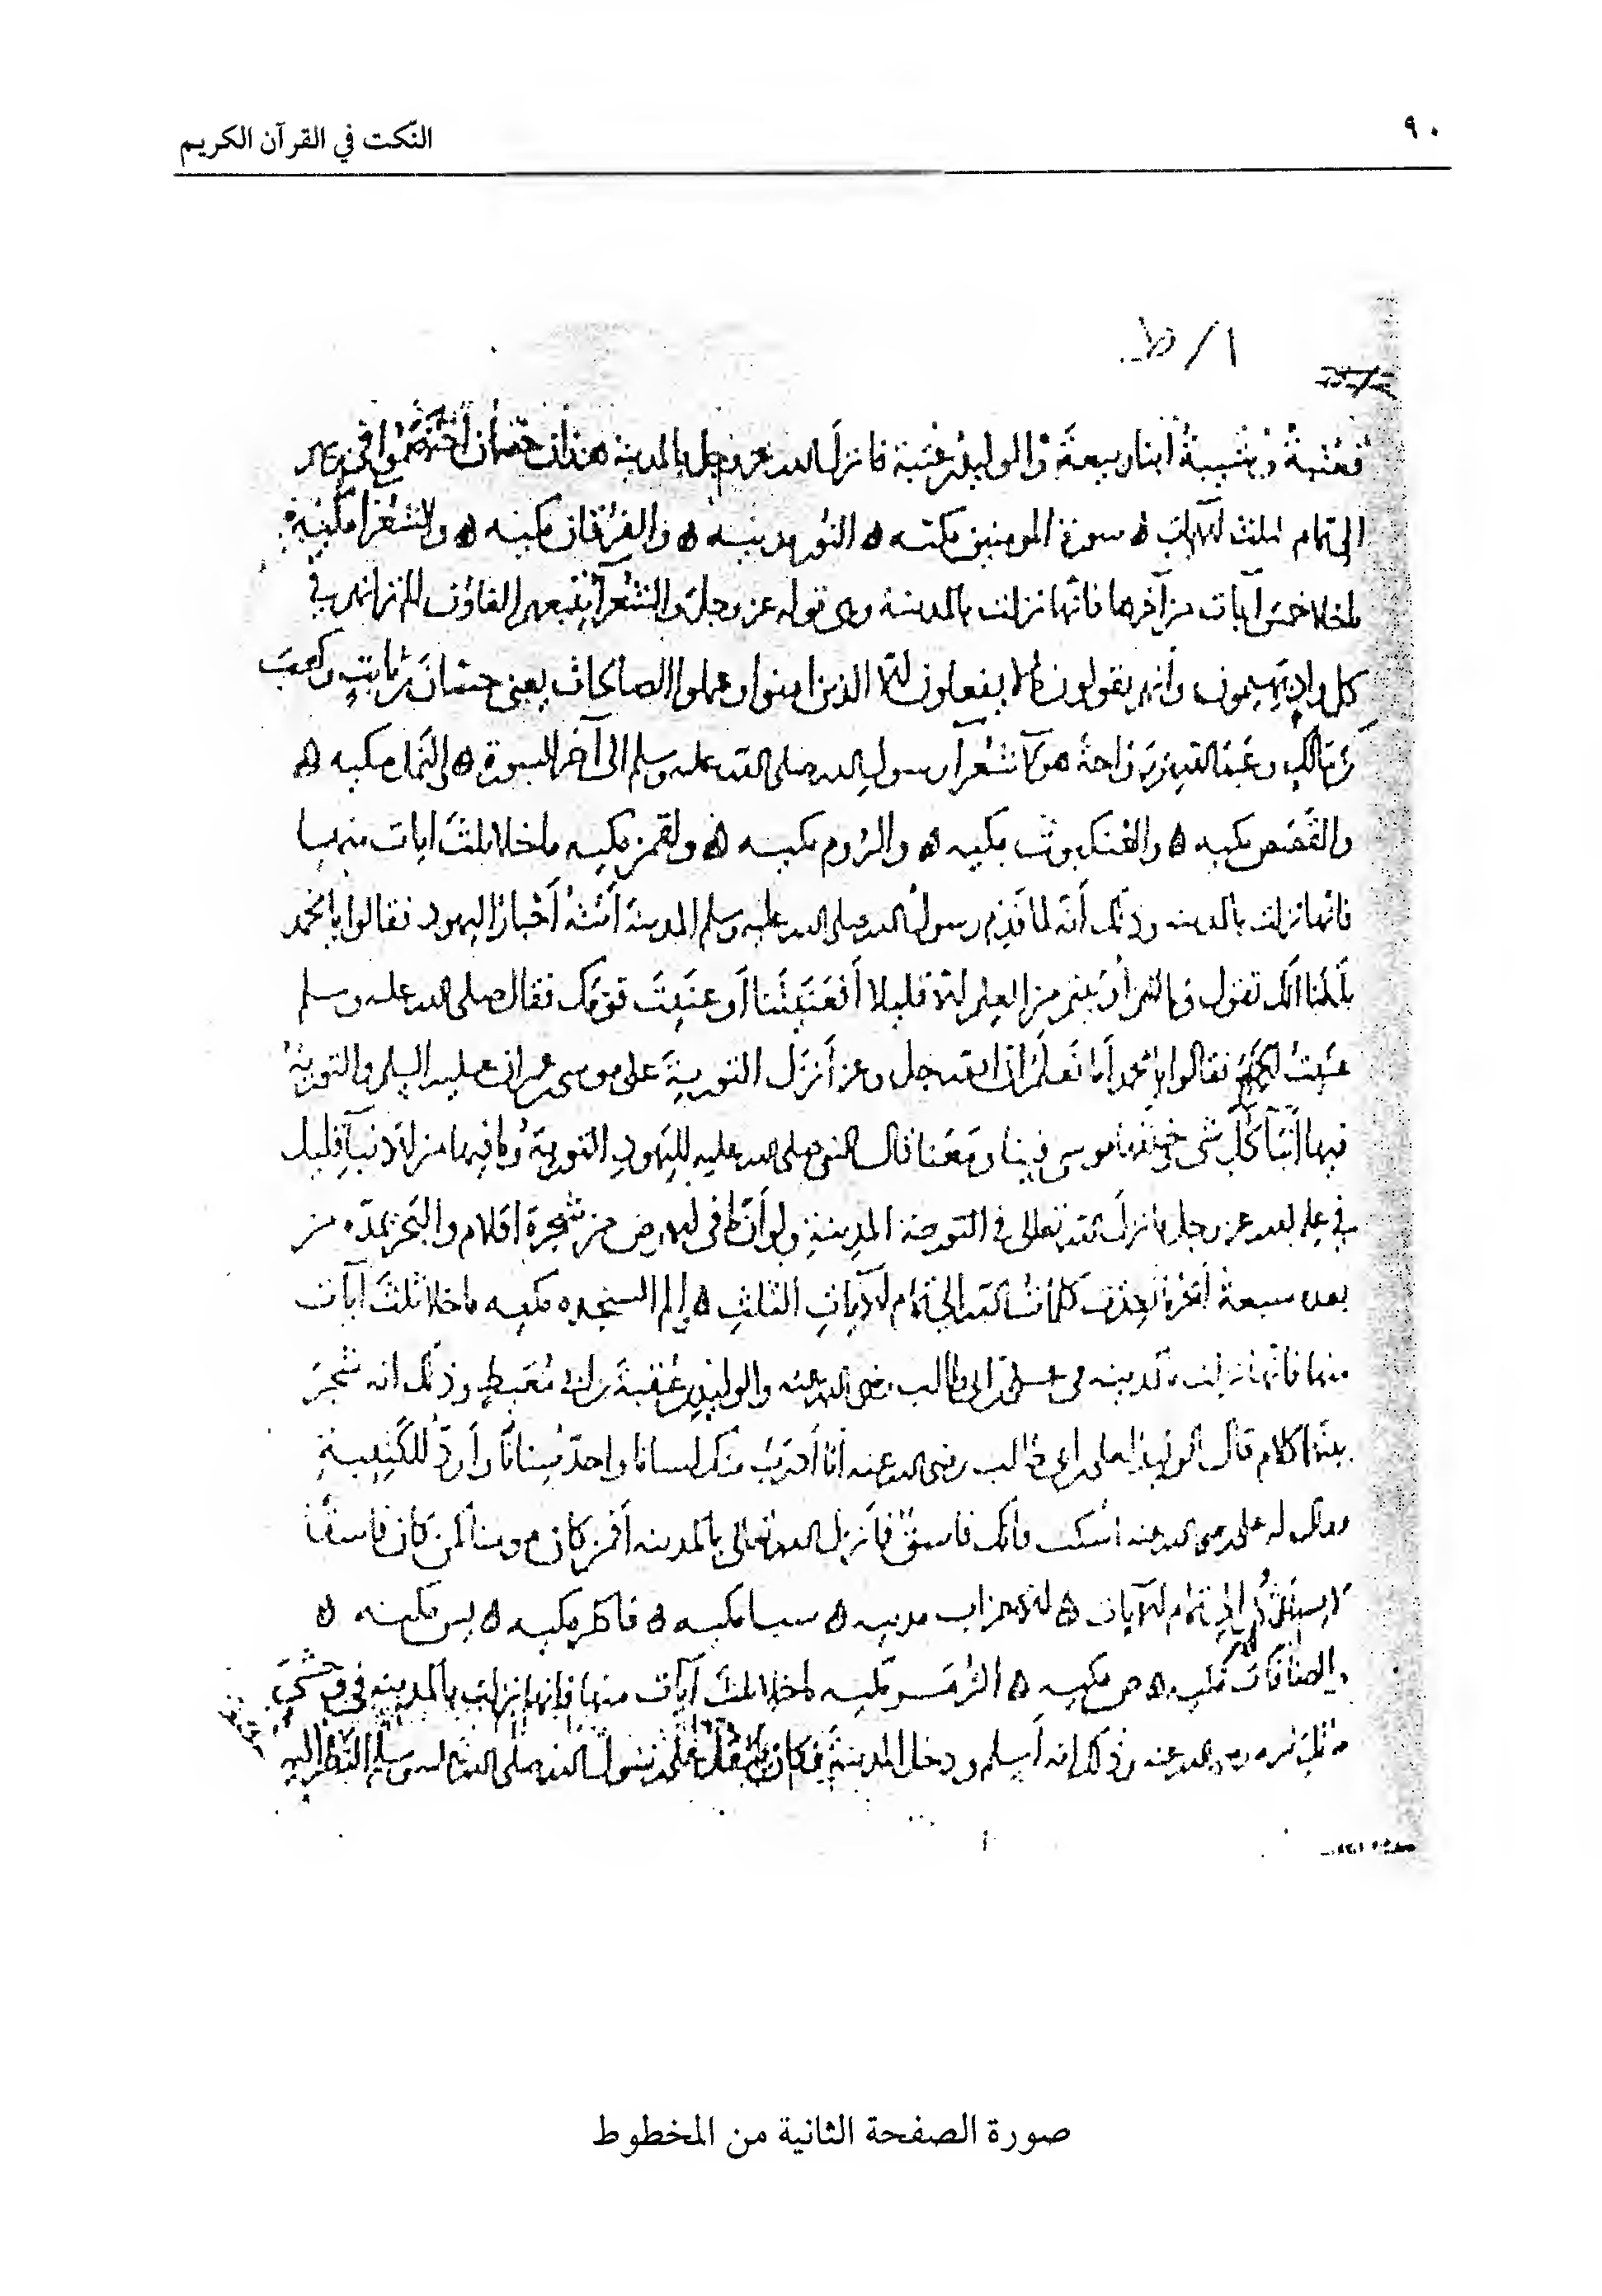 ٩٠
النّكت في القرآن الكريم
١/ظ
وعُتبةُ وشيبةُ ابنا ربيعةَ والوليدُ بن عتبة فانزل الله عز وجل بالمدينة هذان خصمان اختصموا في ربهم
الى تمام الثلث الآيات ه سورة المومنين مكيه ه النور مدنيه ه والفرقان مكيه ه والشعرا مكيه
ما خلا خمس آيات من آخرها فانها نزلت بالمدينة وهى قوله عز وجل والشعرآ يتبعهم الغاون الم تر انهم في
كل وادٍ يهيمون وانهم يقولون ما لا يفعلون الا الذين امنوا وعملوا الصالحات يعني حسّانَ بن ثابتٍ وكعبَ
بن مالكٍ وعبدالله بن رواحة هولآ شعرآ رسول الله صلى الله عليه وسلم الى آخر السورة ه النمل مكيه ه
والقَصَص مكيه ه والعنكبوت مكيه ه والروم مكيه ه ولقمن مكيه ما خلا ثلثَ ايات منها
فانها نزلت بالمدينه وذلك أنه لما قدِم رسولُ الله صلى الله عليه وسلم المدينة أتتهُ أحبارُ اليهود فقالوا يا محمد
بلغنا انك تقول وما اوتيتم من العلم الا قليلا أفعنيتنا أو عنيت قومك فقال صلى الله عليه وسلم
عنيت فقالوا يا محمد أما تعلم ان الله جل وعز أنزل التورية على موسى بن عمران عليه السلم والتوريةُ
فيها أنبآ كل شى موسى فينا ومعنا فقال النبي صلى الله عليه لليهود التورية وما فيها من الأنبآ قليل
في علم الله عز وجل فانزل الله تعالى في التورية المدينة ولو أنّ ما في الارض من شجرة اقلام والبحر يمدّه من
بعده سبعة أبحر ما نفدت كلماتُ الله الى تمام الآيات الثلث ه الم السجده مكيه ما خلا ثلثَ آيات
منها فانها نزلت بالمدينه في على بن ابي طالب رضى الله عنه والوليد بن عُقبة بن ابي مُعَيطٍ وذلك انه شجرَ
بينهما كلام فقال الوليد لعلى بن ابي طالب رضى الله عنه أنا أذربُ منك لسانا واحدّ سنانًا وأردّ للكتيبةِ
وقال له على رضى الله عنه اسكت فانك فاسق فأنزل الله تعالى بالمدينه أفمن كان مومنا كمن كان فاسقًا
لا يستوُن الى تمام الآيات ه الاحزاب مدنيه ه سبا مكيه ه فاطر مكيه ه يس مكيه ه
والصافات مكيه ه ص مكيه ه الزُّمَر مكيه ما خلا ثلث آيات منها فانها نزلت بالمدينه في وحشيّ
حمزه رضى الله عنه وذلك انه أسلم ودخل المدينة فكان يثقل على رسول الله صلى الله عليه وسلم النظر اليه
صورة الصفحة الثانية من المخطوط